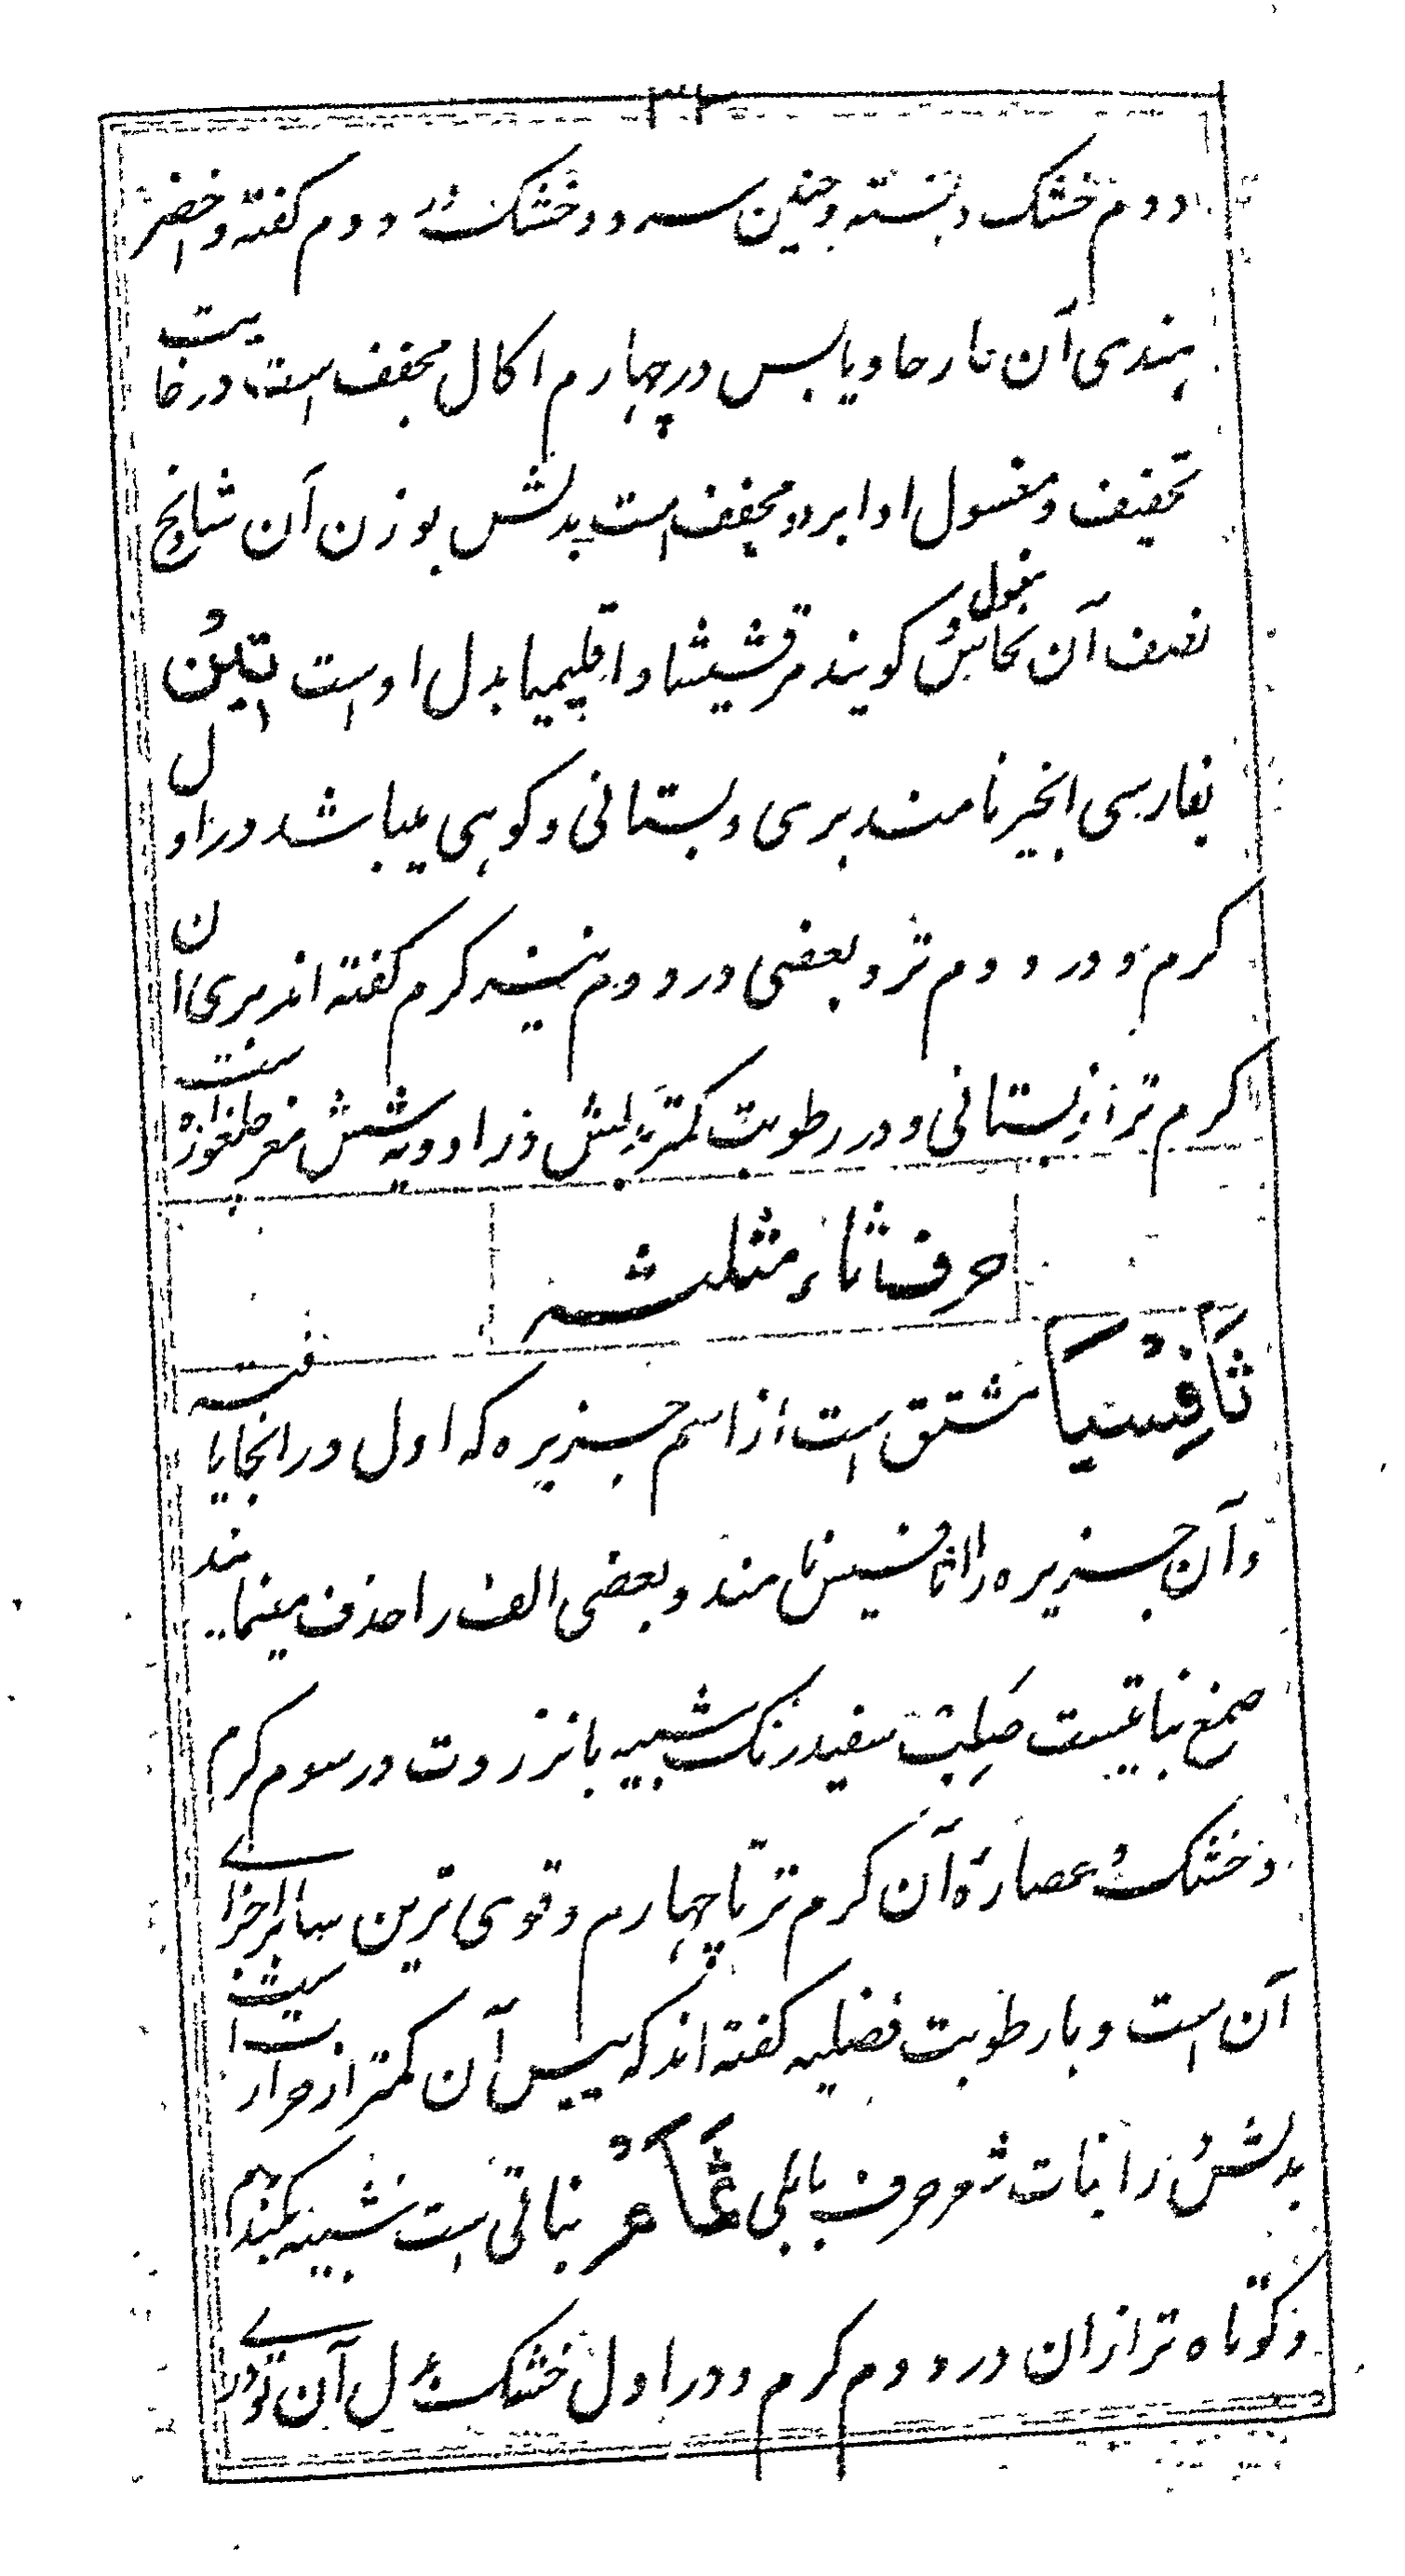 ۳۲
دوم خشک دانسته و حنین سرد و خشک در دوم گفته و اخضر
هندی آن نار حاد یابس در چهارم اکال مجفف است در غایت
تجفیف و مغسول او ابرد و مجفف است بدلش بوزن آن شادنج و
نصف آن نحاس و بغول کویند مرقشیشا و اقلیمیا بدل اوست تین
بفارسی انجیر نامند بری و بستانی و کوهی میباشد در اول
کرم و در دوم تر و بعضی در دوم نیز کرم گفته اند بری آن
کرم تر از بستانی و در رطوبت کمتر بدلش در ادویه شش مغز چلغوزه است
حرف ثاء مثلثه
ثافسیا مشتق است از اسم جزیره که اول در انجا یافته
و آن جزیره را ثافسیس نامند و بعضی الف را حذف مینمایند
صمغ نباتیست صلب سفید رنک شبیه بانزروت در سوم کرم
و خشک و عصاره آن کرم تر تا چهارم و قوی ترین سایر اجزای
آن است و با رطوبت فضلیه گفته اند که یبس آن کمتر از حرارت است
بدلش در انبات شعر حرف بابلی ثمام نباتی است شبیه بکندم
و کوتاه تر از ان در دوم کرم و در اول خشک بدل آن تودری